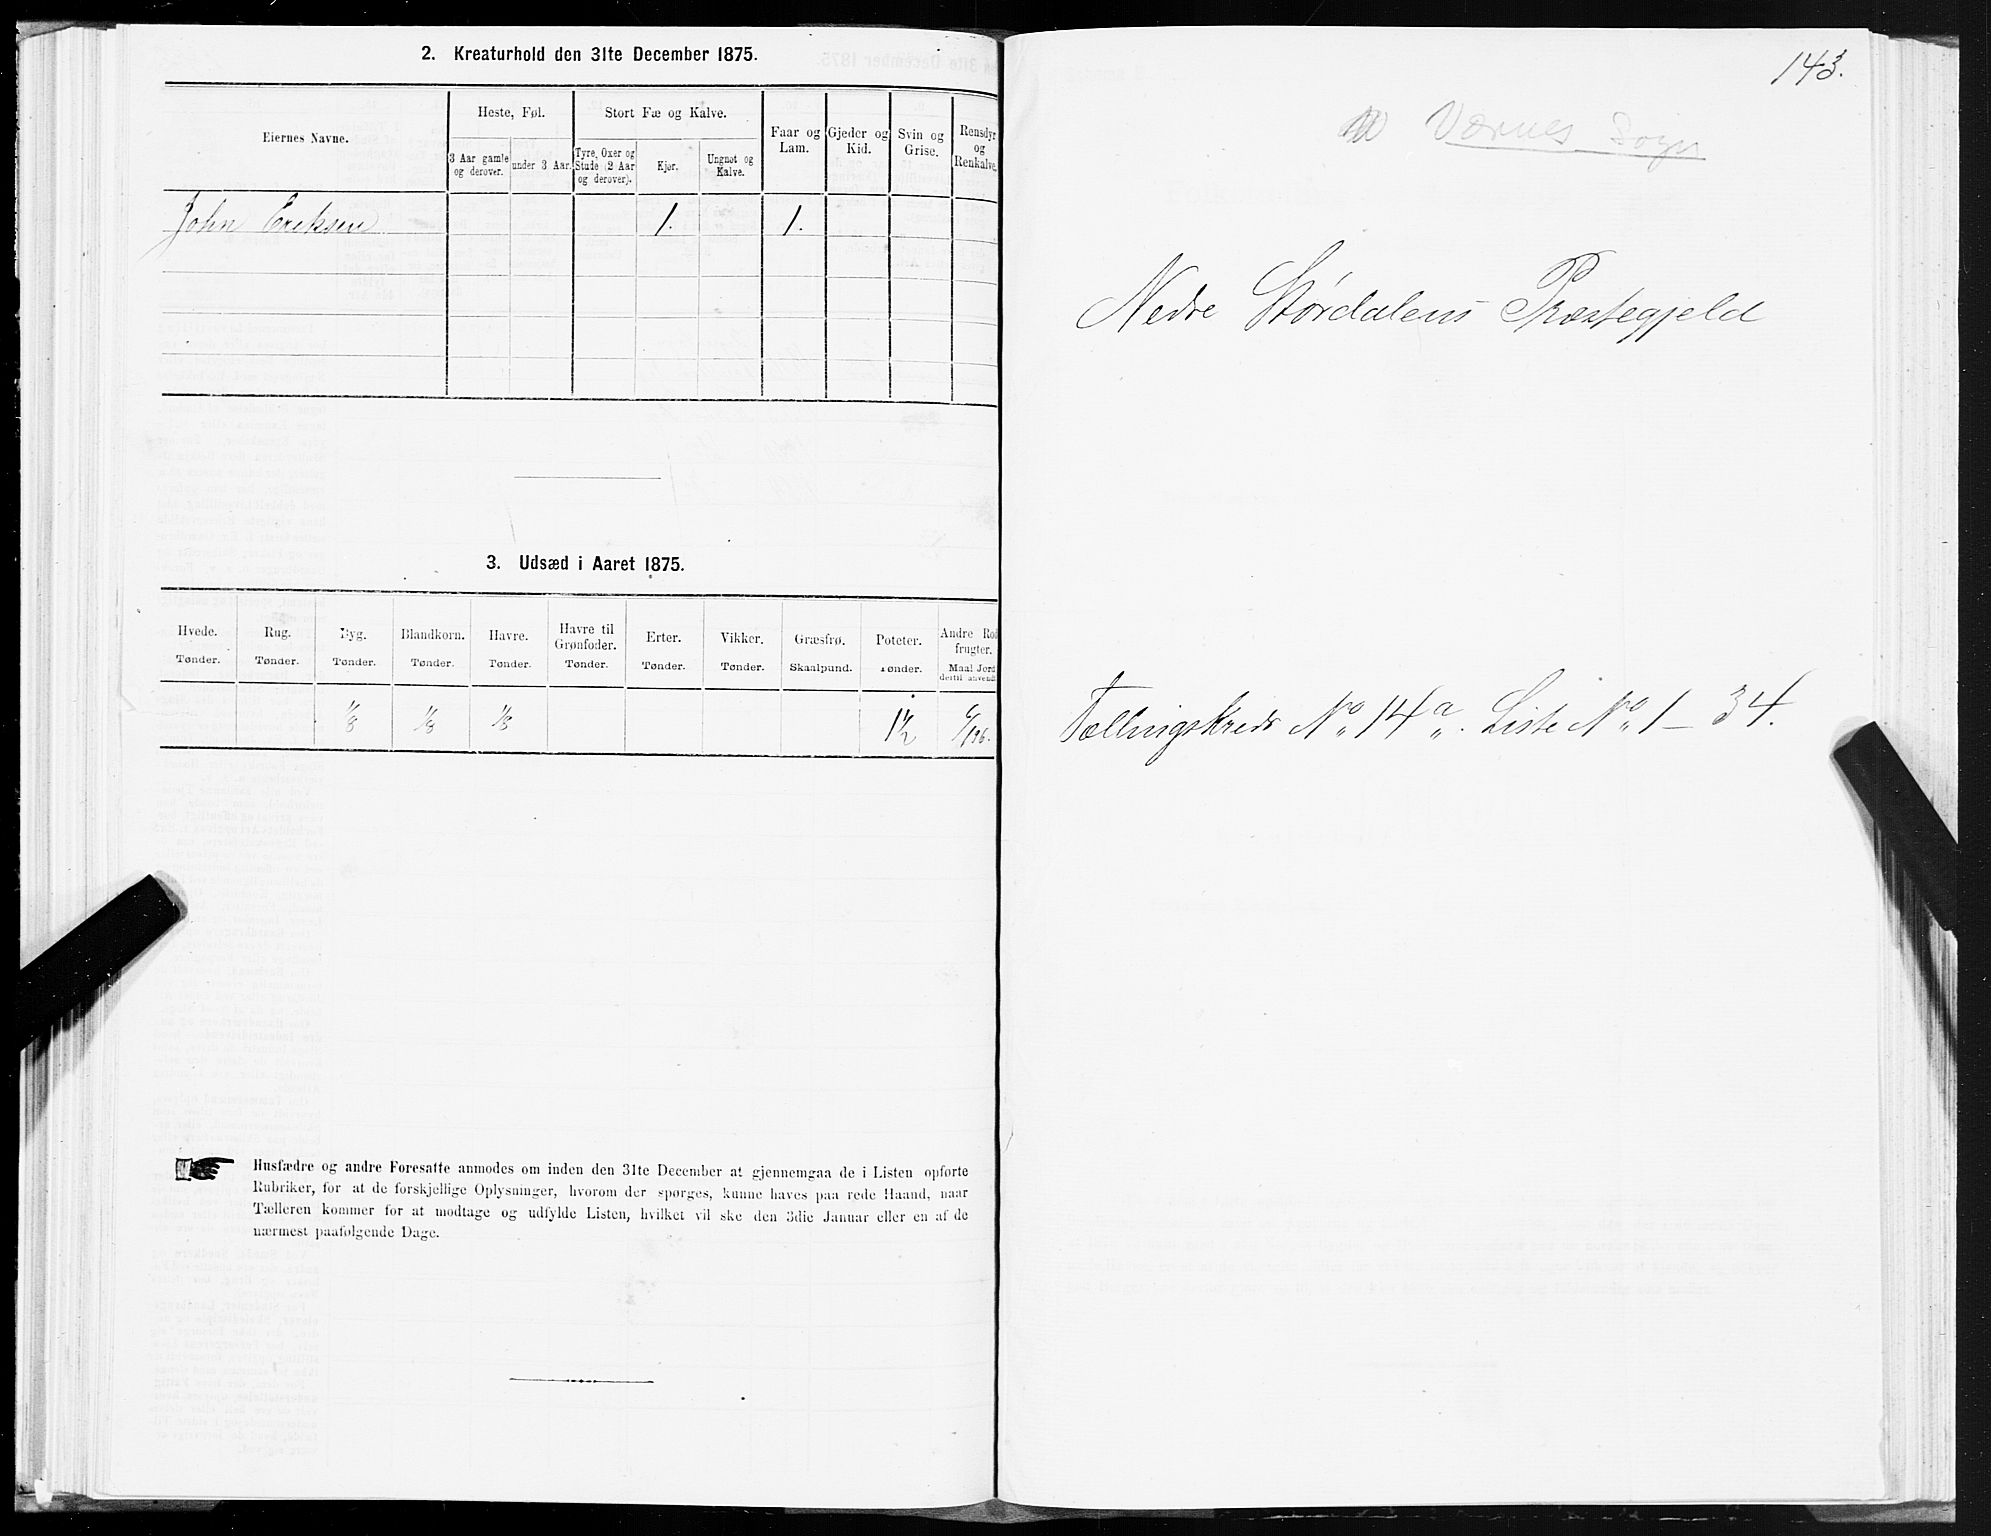 2. Kreaturhold den 31te December 1875.
Eiernes Navne.
Heste, Føl.
3 Aar gamle og derover.
under 3 Aar.
Stort Fæ og Kalve.
Tyre, Oxer og Stude (2 Aar og derover).
Kjør.
Ungnøt og Kalve.
Faar og Lam.
Gjeder og Kid.
Svin og Grise.
Rensdyr og Renkalve.
John Eriksen 1. 1.
3. Udsæd i Aaret 1875.
Hvede. Rug. Byg. Blandkorn. Havre. Havre til Grønfoder. Erter. Vikker. Græsfrø. Poteter. Andre Rodfrugter.
Tønder. Tønder. Tønder. Tønder. Tønder. Tønder. Tønder. Tønder. Skaalpund. Tønder. Maal Jord dertil anvendt
1/8 1/8 1/8 1 1/2
Husfædre og andre Foresatte anmodes om inden den 31te December at gjennemgaa de i Listen opførte
Rubriker, for at de forskjellige Oplysninger, hvorom der spørges, kunne haves paa rede Haand, naar
Tælleren kommer for at modtage og udfylde Listen, hvilket vil ske den 3die Januar eller en af de
nærmest paafølgende Dage.
143.
Værnes Sogn
Nedre Størdalens Præstegjeld
Tællingskreds No 14 a. Liste No 1 – 34.